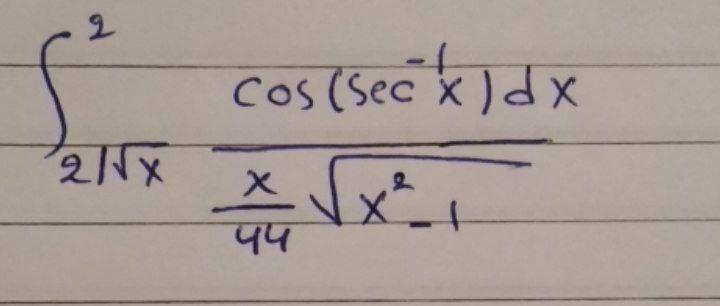 ∫_{2/√x}^{2} \frac{cos(sec^{-1}x)dx}{\frac{x}{44}\sqrt{x^2-1}}